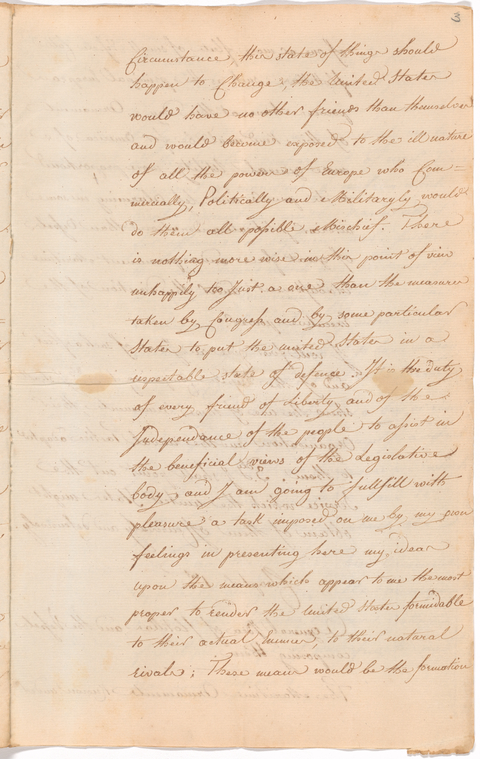 3
Circumstance, this state of things should
happen to Change, the United States
would have no other friends than themselves
and would become exposed to the ill nature
of all the powers of Europe who Com=
mercially, Politically and Militaryly would
do them all possible Mischief. There
is nothing more wise in this point of view
unhappily too Just a one than the measures
taken by Congress and by some particular
States to put the united States in a
respectable state of defence. It is the duty
of every friend of Liberty and of the
Independance of the people to assist in
the beneficial views of the Legislative
body, and I am going to fullfill with
pleasure a task imposed on me by my own
feelings in presenting here my ideas
upon the means which appear to me the most
proper to render the United States formidable
to their actual, to their natural
rivals; These means would be the formation